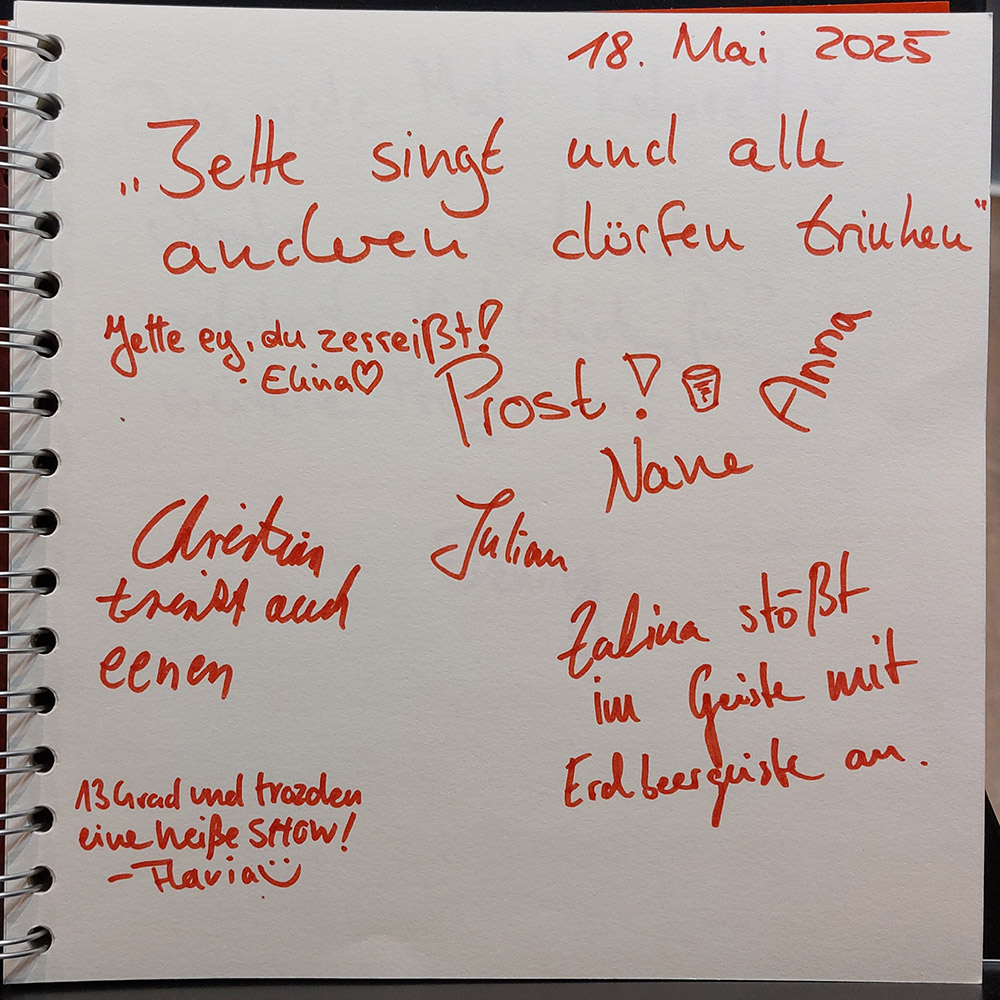 18. Mai 2025
„Jette singt und alle
anderen dürfen trinken“
Jette ey, du zerreißt!
- Elina♡
Prost!
Anna
Nane
Christian
trinkt auch
eenen
Julian
Zalina stößt
im Geiste mit
Erdbeergeiste an.
13 Grad und trozden
eine heiße SHOW!
- Flavia